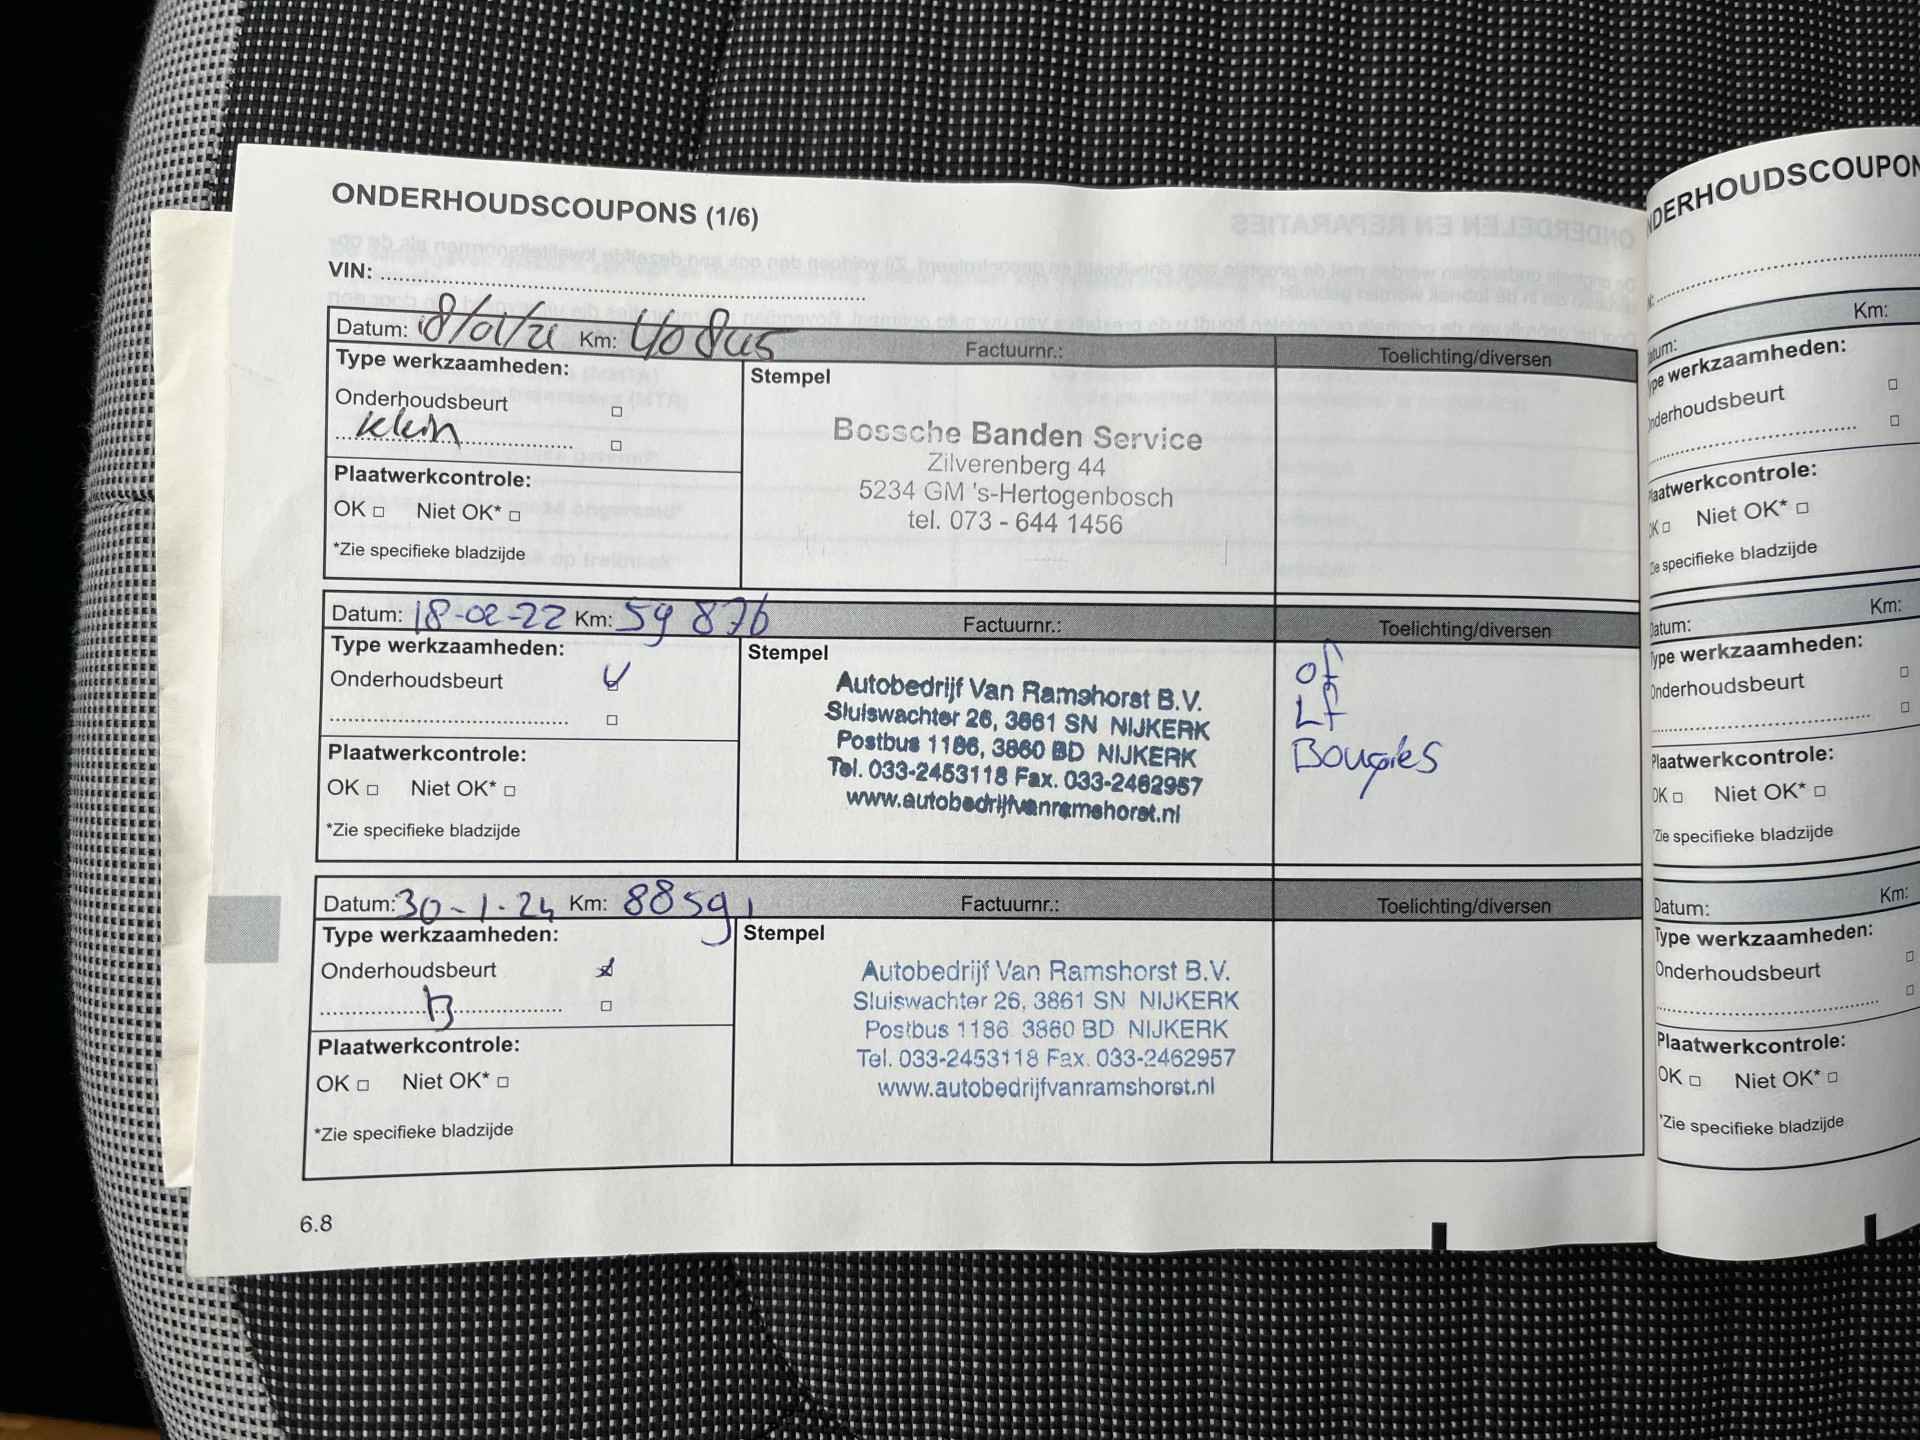 ONDERHOUDSCOUPONS (1/6)
VIN:
Datum: 18/01/21 Km: 40845 Factuurnr.: Toelichting/diversen
Type werkzaamheden: Stempel
Onderhoudsbeurt
klein
Plaatwerkcontrole:
OK Niet OK*
*Zie specifieke bladzijde
Bossche Banden Service
Zilverenberg 44
5234 GM 's-Hertogenbosch
tel. 073 - 644 1456
Datum: 18-02-22 Km: 59 876 Factuurnr.: Toelichting/diversen
Type werkzaamheden: Stempel
Onderhoudsbeurt
Plaatwerkcontrole:
OK Niet OK*
*Zie specifieke bladzijde
Autobedrijf Van Ramshorst B.V.
Sluiswachter 26, 3861 SN NIJKERK
Postbus 1186, 3860 BD NIJKERK
Tel. 033-2453118 Fax. 033-2462957
www.autobedrijfvanramshorst.nl
of
Lf
Bougies
Datum: 30-1-24 Km: 88591 Factuurnr.: Toelichting/diversen
Type werkzaamheden: Stempel
Onderhoudsbeurt
B
Plaatwerkcontrole:
OK Niet OK*
*Zie specifieke bladzijde
Autobedrijf Van Ramshorst B.V.
Sluiswachter 26, 3861 SN NIJKERK
Postbus 1186 3860 BD NIJKERK
Tel. 033-2453118 Fax. 033-2462957
www.autobedrijfvanramshorst.nl
6.8
NDERHOUDSCOUPON
Km:
atum:
Type werkzaamheden:
Onderhoudsbeurt
Plaatwerkcontrole:
OK Niet OK*
Zie specifieke bladzijde
Km:
Datum:
Type werkzaamheden:
Onderhoudsbeurt
Plaatwerkcontrole:
OK Niet OK*
*Zie specifieke bladzijde
Km:
Datum:
Type werkzaamheden:
Onderhoudsbeurt
Plaatwerkcontrole:
OK Niet OK*
*Zie specifieke bladzijde